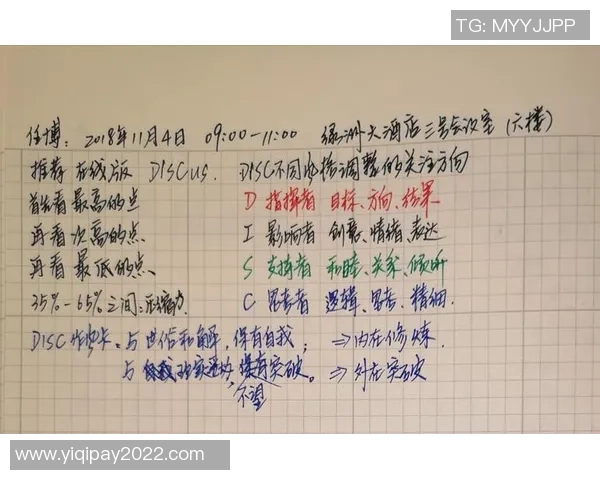 TG: MYYJJPP
任博：2018年11月4日 09:00-11:00 绿洲大酒店三号会议室（六楼）
推荐在线版 DISCUS. DISC不同风格调整的关注方向
首先看最高的点 D 指挥者 目标、方向、结果
再看次高的点、 I 影响者 创意、情绪、表达
再看最低的点、 S 支持者 和睦、关系、倾听
35%-65%之间：压缩 C 思考者 逻辑、思考、精细.
DISC 与世俗和解，保有自我； ⇒内在修炼.
与 突破。⇒外在突破
不望
www.yiqipay2022.com/